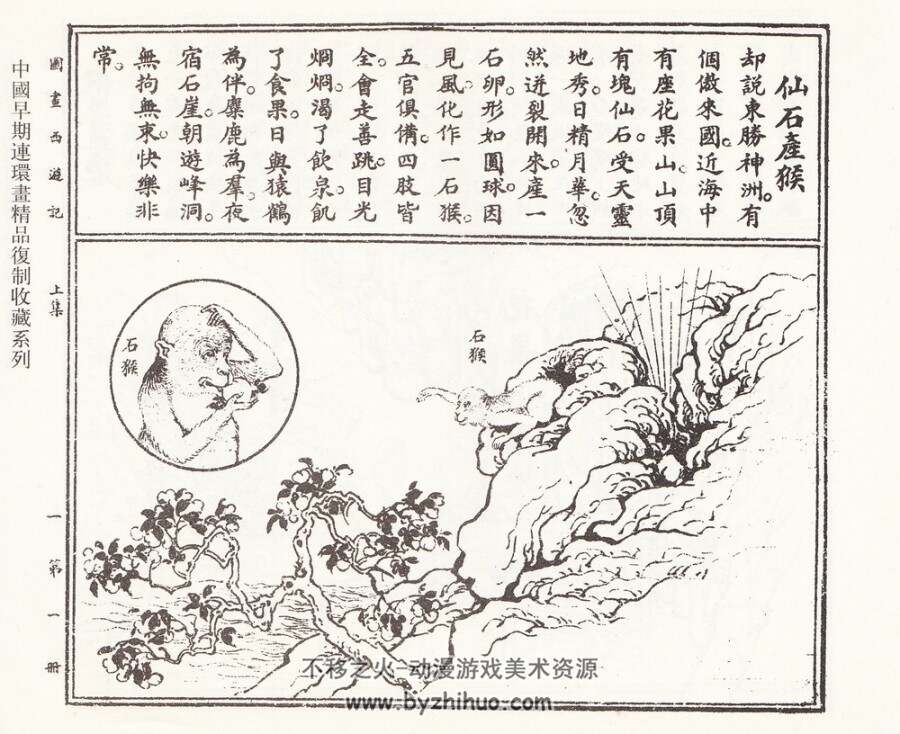 仙石產猴
却説東勝神洲。有
個傲來國。近海中
有座花果山。山頂
有塊仙石。受天靈
地秀。日精月華。忽
然迸裂開來。產一
石卵。形如圓球。因
見風。化作一石猴。
五官俱備。四肢皆
全。會走善跳。目光
烱烱。渴了飲泉。飢
了食果。日與猿鶴
為伴。麋鹿為羣。夜
宿石崖。朝遊峰洞。
無拘無束。快樂非
常。
石猴
石猴
圖畫西遊記 上集 一 第一册
中國早期連環畫精品復制收藏系列
不移之火-动漫游戏美术资源
www.byzhihuo.com